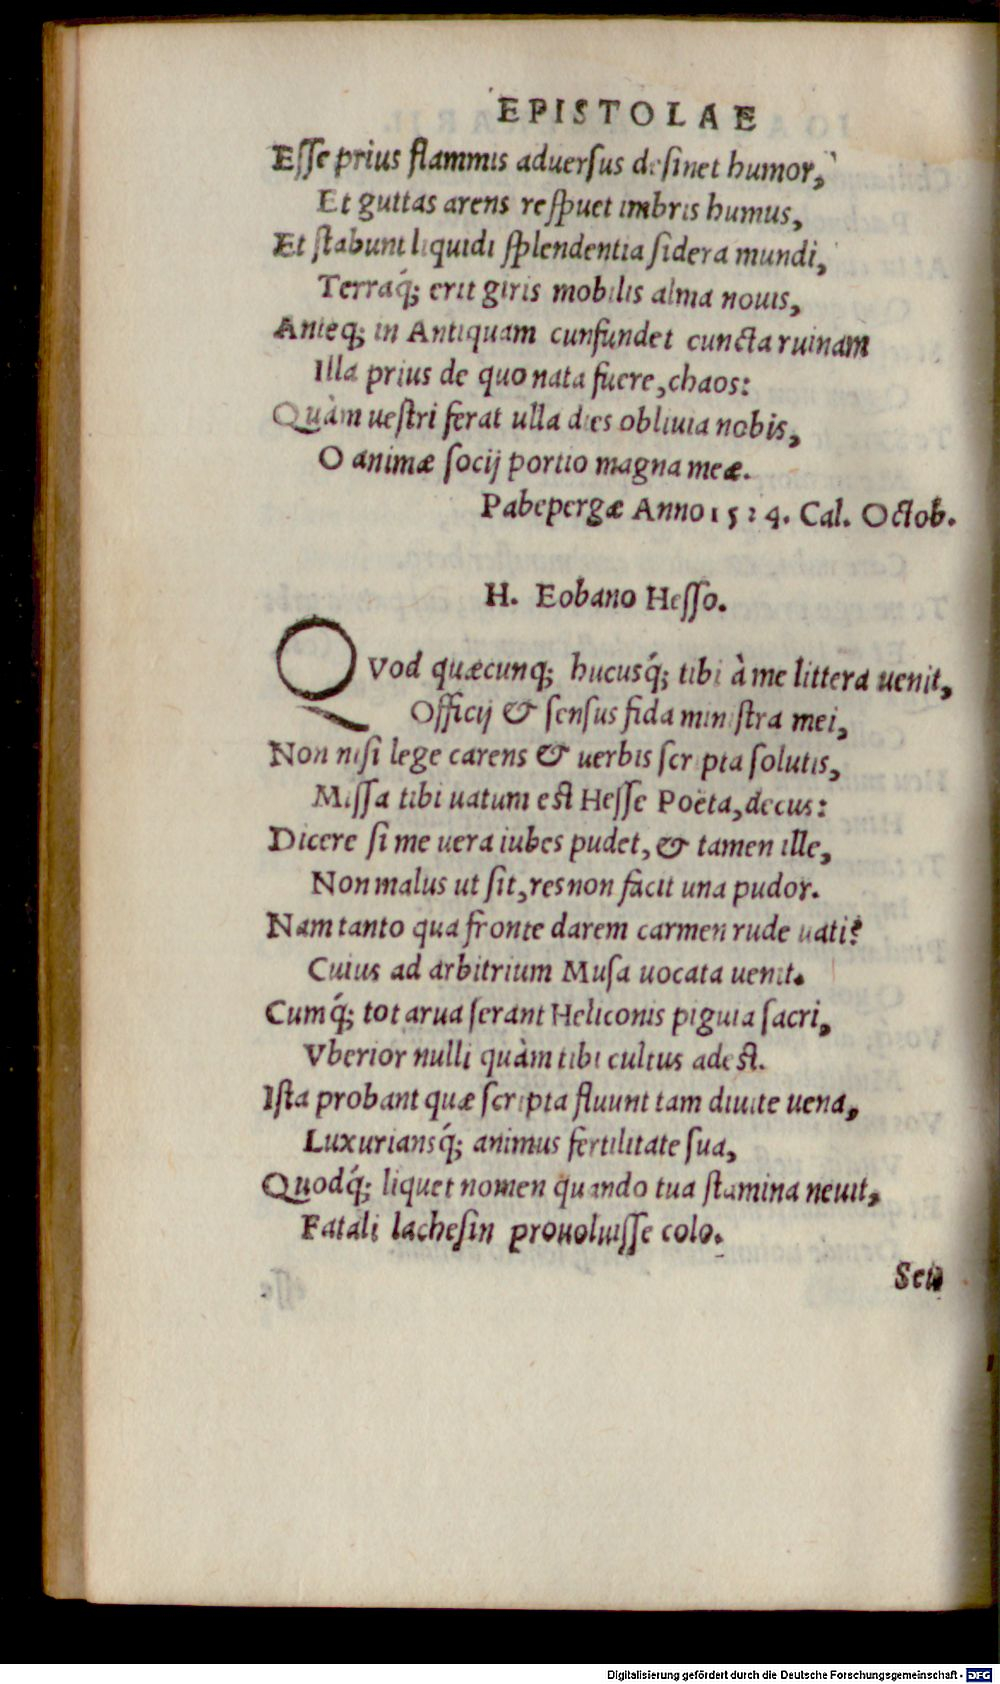 EPISTOLAE
Esse prius flammis aduersus desinet humor,
Et guttas arens respuet imbris humus,
Et stabunt liquidi splendentia sidera mundi,
Terraq́; erit giris mobilis alma nouis,
Anteq; in Antiquam cunfundet cuncta ruinam
Illa prius de quo nata fuere, chaos:
Quàm uestri ferat ulla dies obliuia nobis,
O animæ socij portio magna meæ.
Pabepergæ Anno 1524. Cal. Octob.
H. Eobano Hesso.
QVod quæcunq; hucusq́; tibi à me littera uenit,
Officij & sensus fida ministra mei,
Non nisi lege carens & uerbis scripta solutis,
Missa tibi uatum est Hesse Poëta, decus:
Dicere si me uera iubes pudet, & tamen ille,
Non malus ut sit, res non facit una pudor.
Nam tanto qua fronte darem carmen rude uati?
Cuius ad arbitrium Musa uocata uenit.
Cumq́; tot arua ferant Heliconis piguia sacri,
Vberior nulli quàm tibi cultus adest.
Ista probant quæ scripta fluunt tam diuite uena,
Luxuriansq́; animus fertilitate sua,
Quodq́; liquet nomen quando tua stamina neuit,
Fatali lachesin prouoluisse colo.
Seu
Digitalisierung gefördert durch die Deutsche Forschungsgemeinschaft - DFG